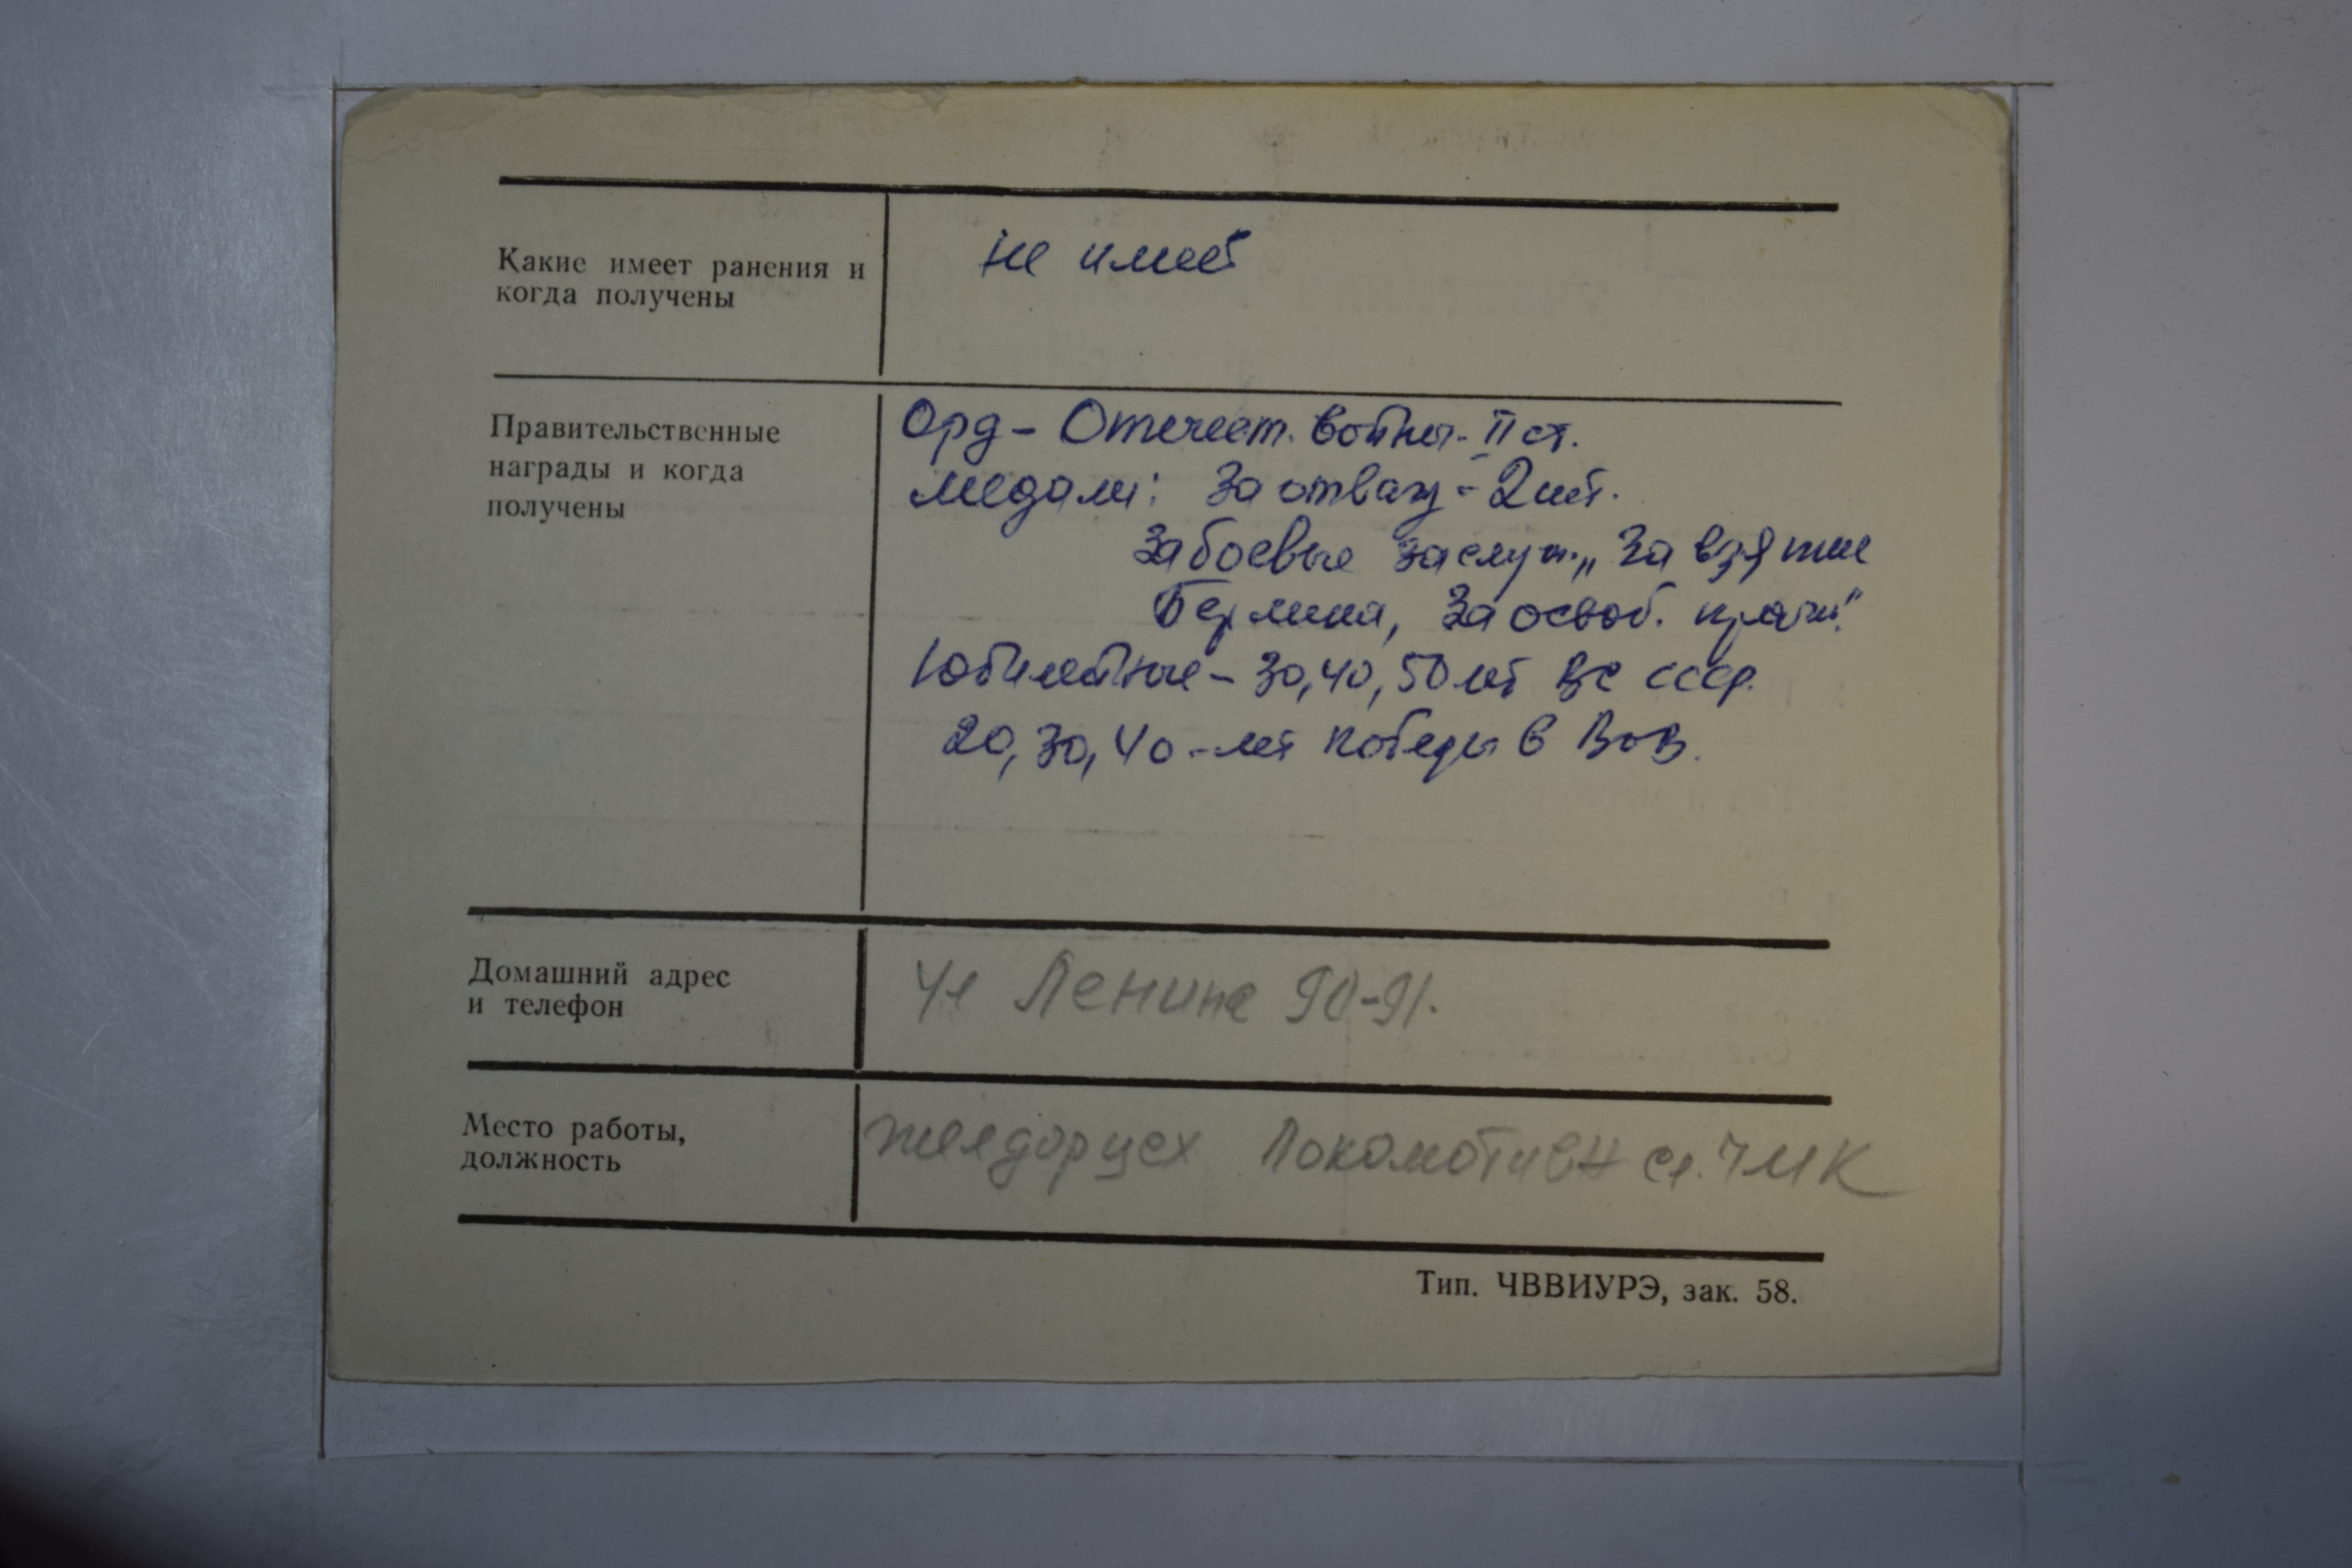 Какие имеет ранения и
когда получены
не имеет
Правительственные
награды и когда
получены
Орд - Отечест. войны - II ст.
медали: За отвагу - 2 шт.
За боевые заслуги, „За взятие
Берлина, За освоб. праги"
Юбилейные - 30, 40, 50 лет ВС СССР.
20, 30, 40 - лет победы в ВОВ.
Домашний адрес
и телефон
Ул Ленина 90-91.
Место работы,
должность
желдорцех Локомотивн сл. ЧМК
Тип. ЧВВИУРЭ, зак. 58.